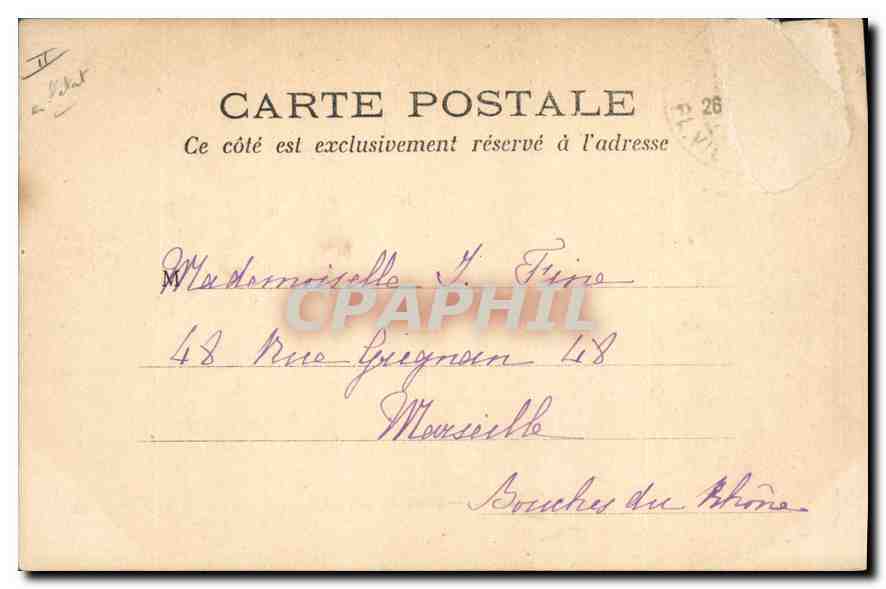 II
CARTE POSTALE
26
Ce côté est exclusivement réservé à l'adresse
Mademoiselle J. Fine
CPAPHIL
48 Rue Grignan 48
Marseille
Bouches du Rhône